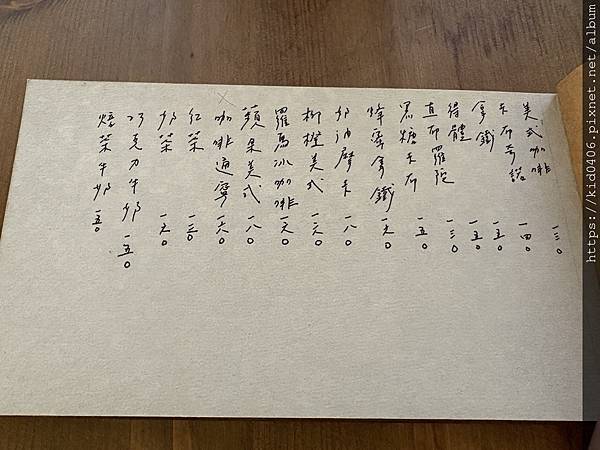 美式咖啡 一三〇
卡布奇諾 一四〇
拿鐵 一五〇
得體 一五〇
直布羅陀 一三〇
黑糖卡布 一五〇
蜂蜜拿鐵 一六〇
奶油摩卡 一八〇
柳橙美式 一六〇
羅馬冰咖啡 一六〇
蘋果美式 一八〇
咖啡通寧 一六〇
紅茶 一三〇
奶茶 一六〇
巧克力牛奶 一五〇
焙茶牛奶 一五〇
https://kid0406.pixnet.net/album